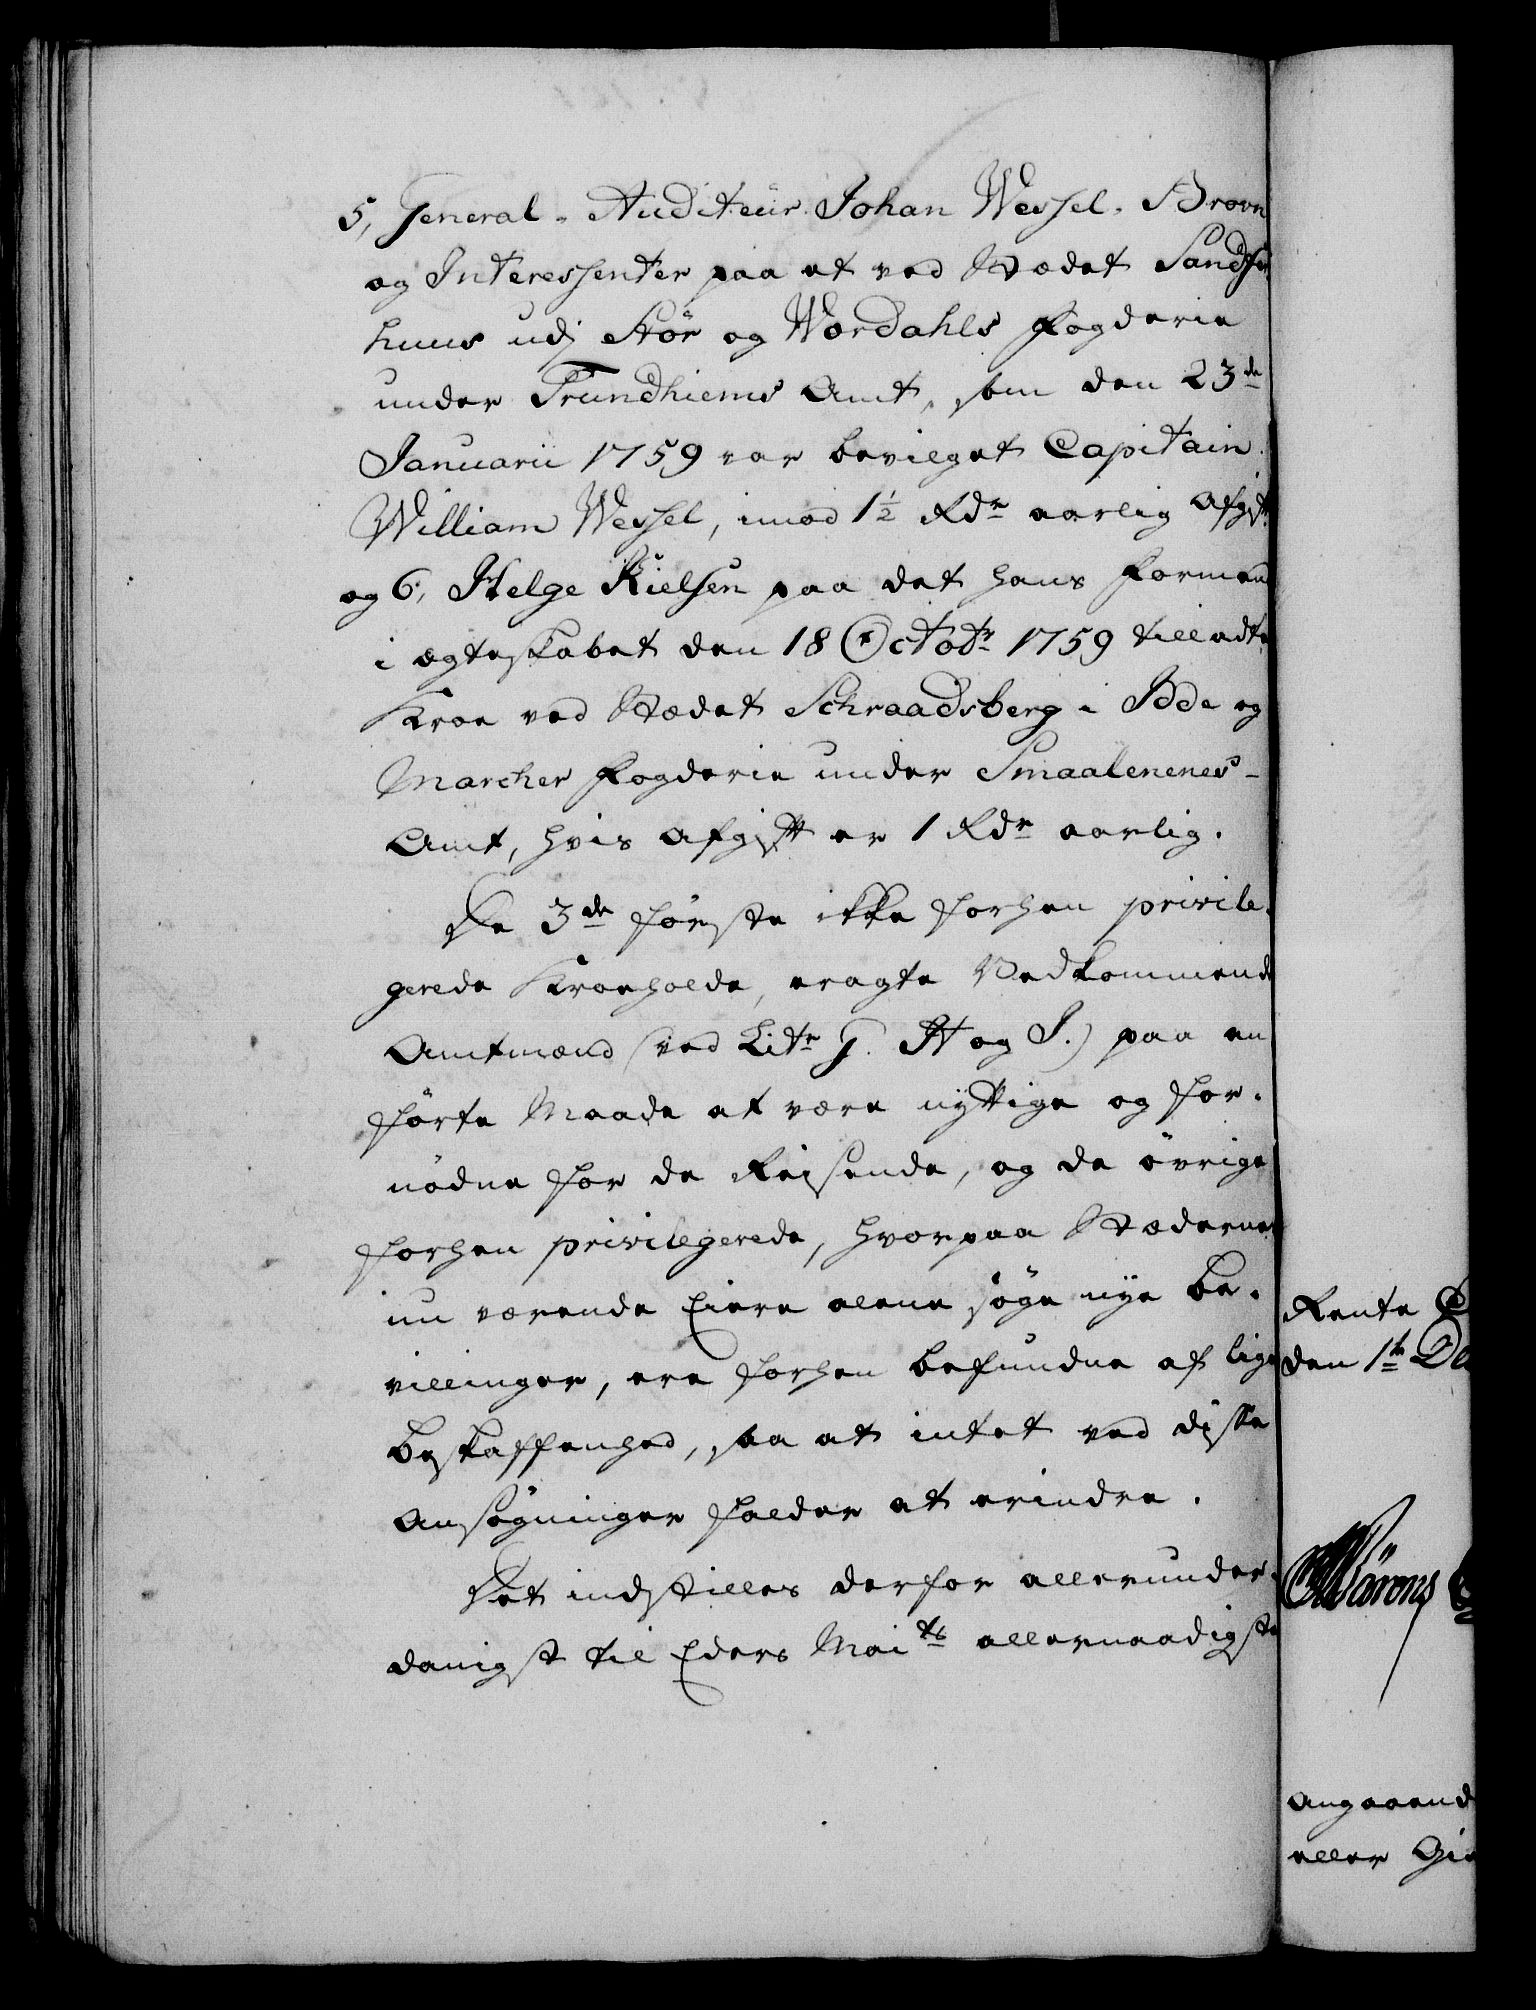 5, General-Auditeur Johan Wessel-Brovn
og Interessenter paa at ved Stædet Sandfær
huus udj Stör og Værdahls Fogderie
under Trundhiems Amt, som den 23de
Januarii 1759 var bevilget Capitain
William Wessel, imod 1½ Rdr aarlig Afgift
og 6, Helge Kielsen paa det hans Formand
i ægteskabet den 18 Octobr 1759 tilladte
Kroe ved Stædet Schraadsberg i Idde og
Marcher Fogderie under Smaalenenes-
Amt, hvis Afgift er 1 Rdr aarlig.
De 3de första ikke forhen privile-
gerede Kroeholde, eragte Vedkommende
Amtmænd (ved Litr G. H og I.) paa an
förte Maade at være nyttige og for-
nödne for de Reisende, og de övrige
forhen privilegerede, hvorpaa Stædernes
nu værende Eiere alene söge nye be-
villinger, ere forhen befundne af lige
beskaffenhed, saa at intet ved disse
Ansögninger falder at erindre.
Det indstilles derfor allerunder-
danigst til Eders Maits allernaadigste
Rente
den 1te De
Angaaend
eller Gie